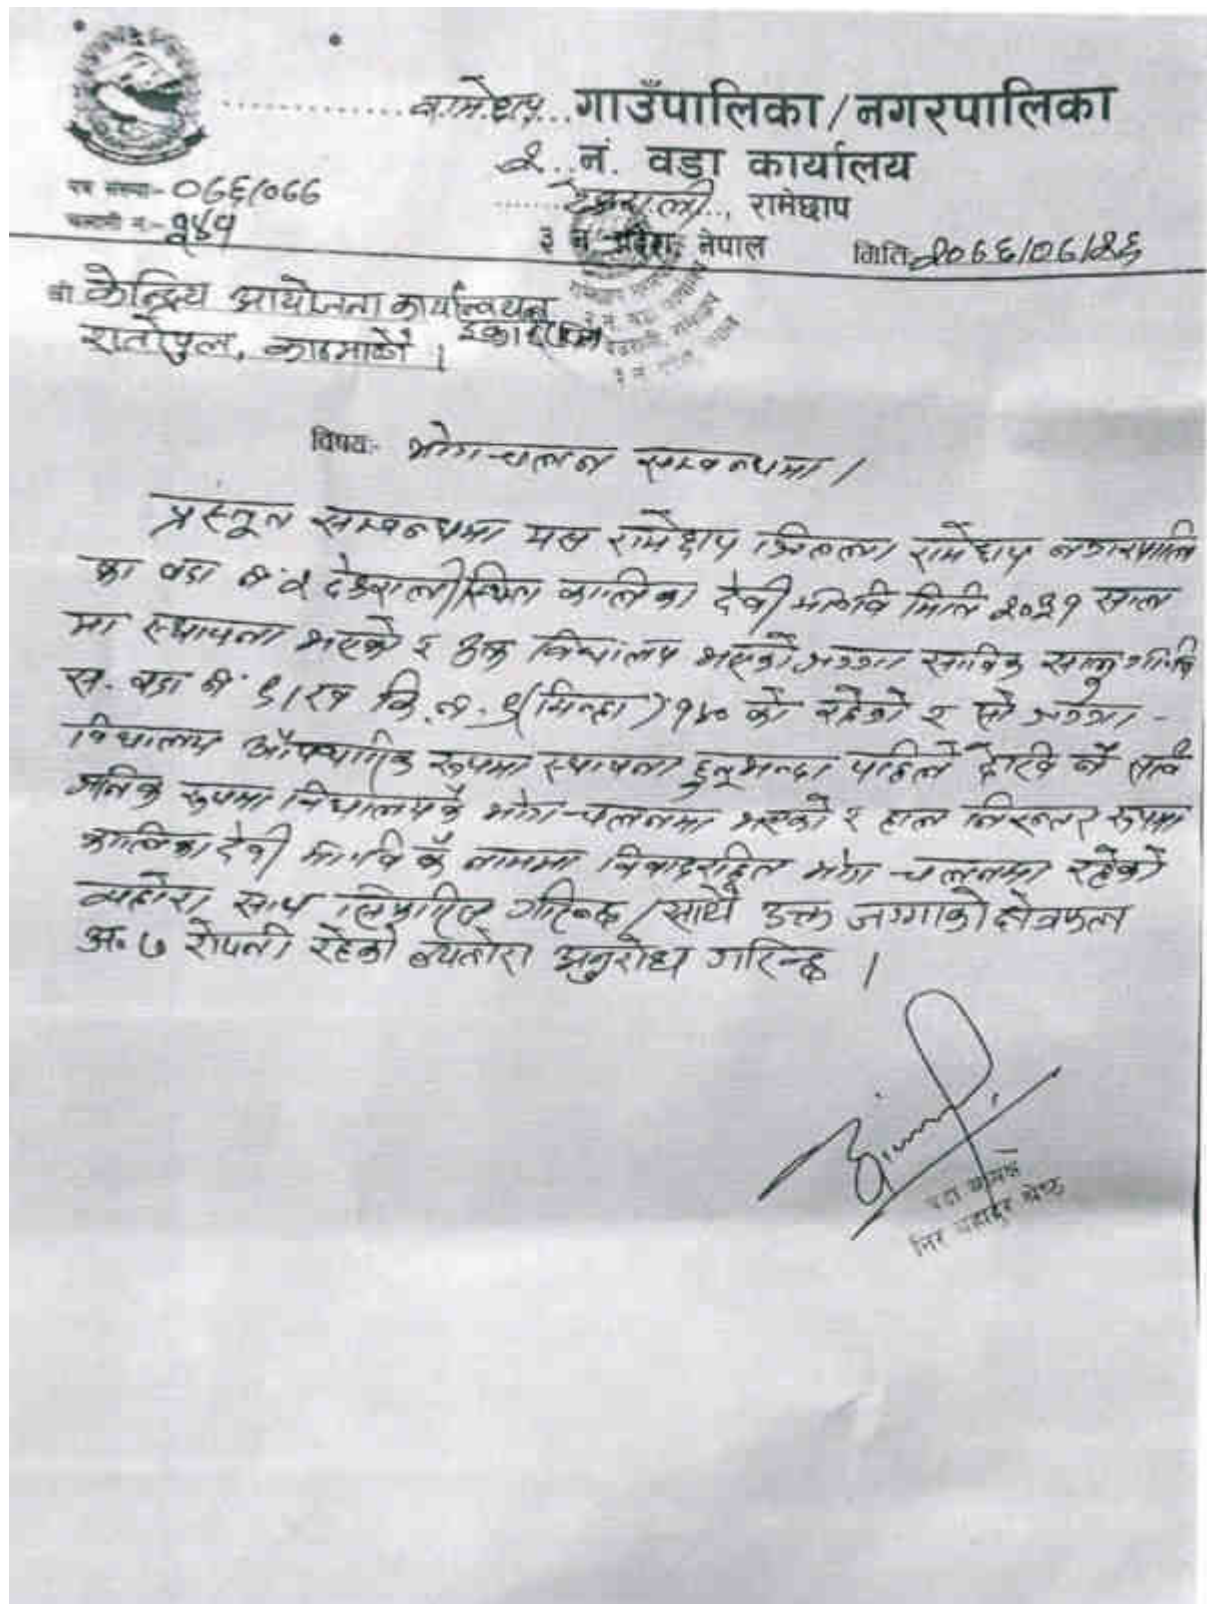 रामेछाप गाउँपालिका/नगरपालिका
२ नं. वडा कार्यालय
देउराली, रामेछाप
३ नं. प्रदेश, नेपाल
पत्र संख्या:-
चलानी नं:-
मिति
श्री केन्द्रिय आयोजना कार्यान्वयन
इकाई
रातोपुल, काठमाडौँ ।
विषय:- भोग-चलन सम्बन्धमा ।
प्रस्तुत सम्बन्धमा यस रामेछाप जिल्ला रामेछाप नगरपालि
का वडा नं २ देउराली स्थित कालिका देवी मा.वि मिति साल
मा स्थापना भएको र उक्त विद्यालय भएको जग्गा साविक
स. वडा नं कि.नं. को रहेको र सो जग्गा -
विद्यालय औपचारिक रूपमा स्थापना हुनुभन्दा पहिले देखि नै सार्व
जनिक रूपमा विद्यालयकै भोग-चलनमा भएको र हाल निरन्तर रूपमा
कालिका देवी मा.वि कै नाममा विवादरहित भोग चलनमा रहेको
व्यहोरा साथ सिफारिस गरिन्छ / साथै उक्त जग्गाको क्षेत्रफल
अ. ७ रोपनी रहेको व्यहोरा अनुरोध गरिन्छ ।
वडा अध्यक्ष
बहादुर श्रेष्ठ